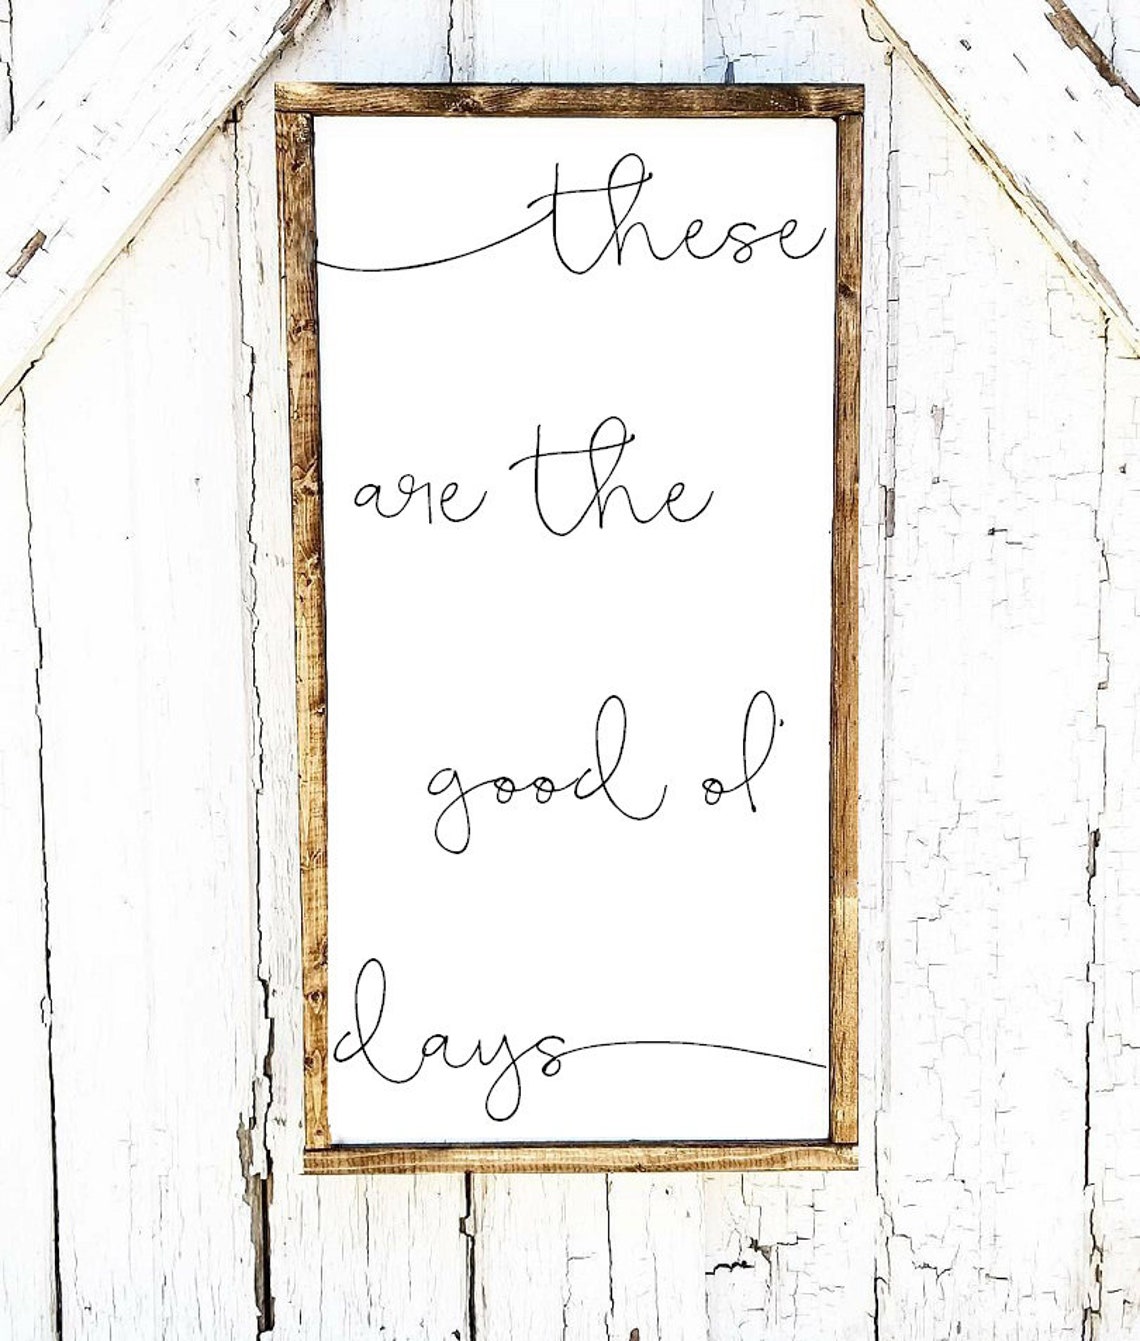 these
are the
good ol'
days